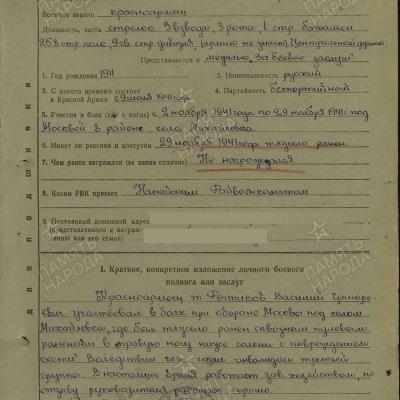 Военное звание красноармеец
Должность, часть стрелок 3 взвода, 3 рота, 1 стр. батальон
стр. полк, стр. дивизия, (армию не знает) Центральный фронт
Представляется к медалью, За боевые заслуги
1. Год рождения 1911 2. Национальность русский
3. С какого времени состоит в Красной Армии с июля 1941 года 4. Партийность беспартийный
5. Участие в боях (где и когда) С 2 ноября 1941 года по 29 ноября 1941 г. под
Москвой в районе села Михайловка.
6. Имеет ли ранения и контузии 29 ноября 1941 года тяжело ранен
7. Чем ранее награжден (за какие отличия) Не награждался
8. Каким РВК призван Райвоенкоматом
9. Постоянный домашний адрес
(представляемого к награж-
дению или его семьи)
I. Краткое, конкретное изложение личного боевого
подвига или заслуг
Красноармеец т. Василий Григорь-
евич участвовал в боях при обороне Москвы под селом
Михайловкой, где был тяжело ранен сквозным пулевым
ранением в правую ногу ниже голени с повреждением
кости. Вследствии чего стал инвалидом третьей
группы. В настоящее время работает зав. хозяйством, по
отзыву руководителей работает хорошо.
Для подшивки
ПАМЯТЬ НАРОДА